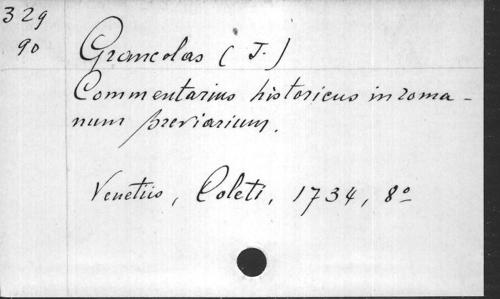 329
90
Grancolas (J.)
Commentarius historicus in roma-
num breviarium.
Venetiis, Coleti, 1734, 8º